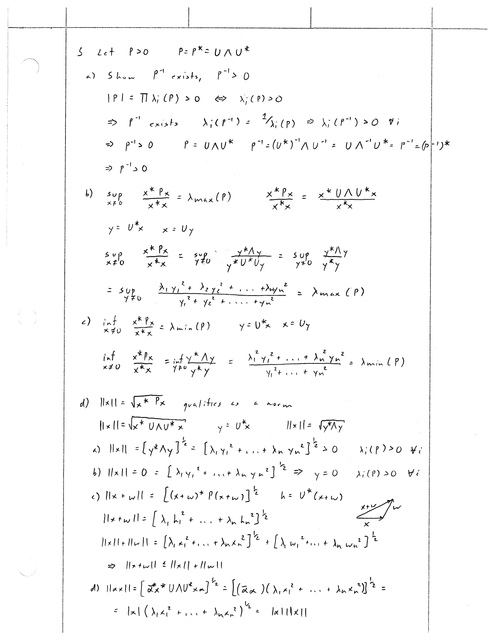 5 Let P>0 P=P*=UΛU*
a) Show P⁻¹ exists, P⁻¹>0
|P| = Πλi(P) > 0 ⇔ λi(P)>0
⇒ P⁻¹ exists λi(P⁻¹) = 1/λi(P) ⇒ λi(P⁻¹) > 0 ∀i
⇒ P⁻¹>0 P = UΛU* P⁻¹=(U*)⁻¹Λ U⁻¹ = UΛ⁻¹U* = P⁻¹=(P⁻¹)*
⇒ P⁻¹>0
b) sup x≠0 x*Px/x*x = λmax(P) x*Px/x*x = x*UΛU*x/x*x
y = U*x x = Uy
sup x≠0 x*Px/x*x = sup y≠0 y*Λy/y*U*Uy = sup y≠0 y*Λy/y*y
= sup y≠0 λ1y1²+λ2y2²+...+λnyn²/y1²+y2²+....+yn² = λmax(P)
c) inf x≠0 x*Px/x*x = λmin(P) y=U*x x=Uy
inf x≠0 x*Px/x*x = inf y≠0 y*Λy/y*y = λ1²y1²+...+λn²yn²/y1²+...+yn² = λmin(P)
d) ||x|| = √x*Px qualifies as a norm
||x|| = √x*UΛU*x y=U*x ||x|| = √y*Λy
a) ||x|| = [y*Λy]^½ = [λ1y1²+...+λnyn²]^½ >0 λi(P)>0 ∀i
b) ||x||=0 = [λ1y1²+...+λnyn²]^½ ⇒ y=0 λi(P)>0 ∀i
c) ||x+w|| = [(x+w)*P(x+w)]^½ h=U*(x+w)
x+w w
||x+w|| = [λ1h1²+...+λnhn²]^½ x
||x||+||w|| = [λ1x1²+...+λnxn²]^½ + [λ1w1²+...+λnwn²]^½
⇒ ||x+w|| ≤ ||x||+||w||
d) ||αx|| = [α*x*UΛU*xα]^½ = [(ᾱα)(λ1x1²+...+λnxn²)]^½ =
= |α|(λ1x1²+...+λnxn²)^½ = |α|||x||